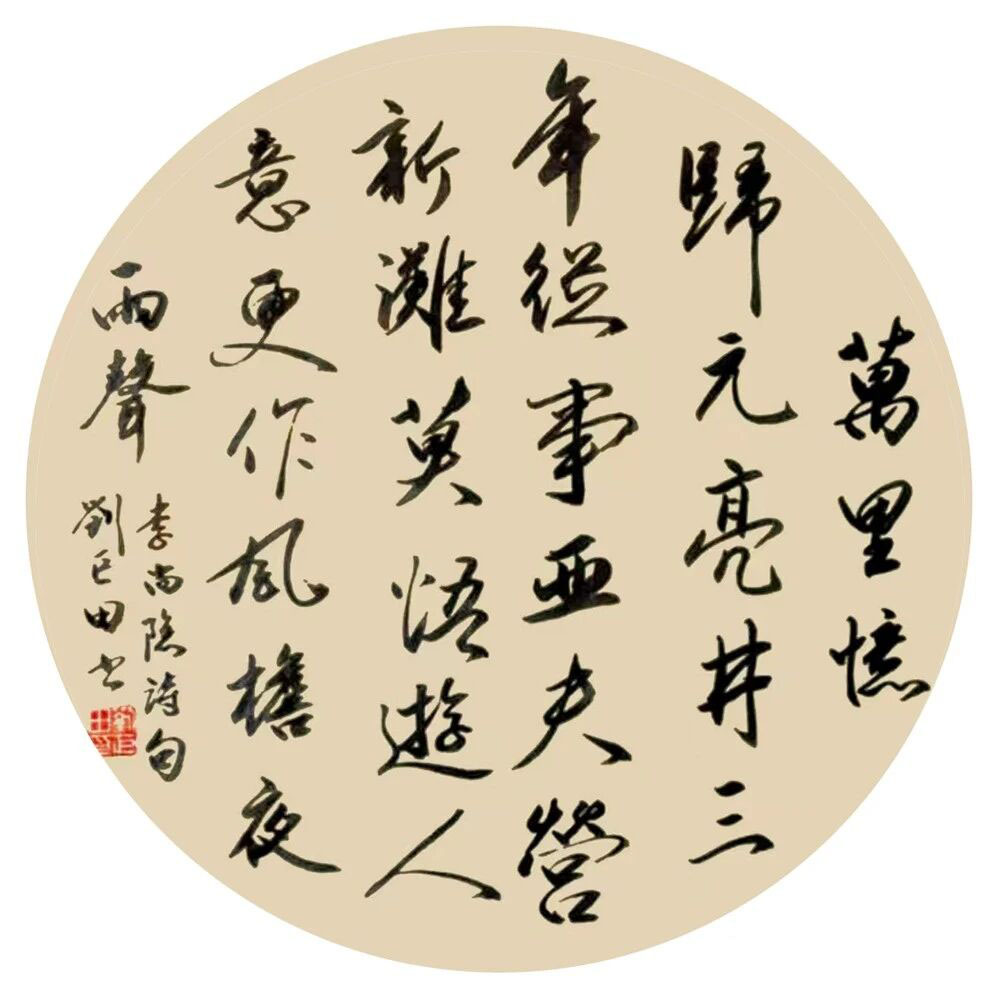 萬里憶
歸元亮井三
年從事亞夫營
新灘莫悟遊人
意更作風檐夜
雨聲
李商隐詩句
劉田书